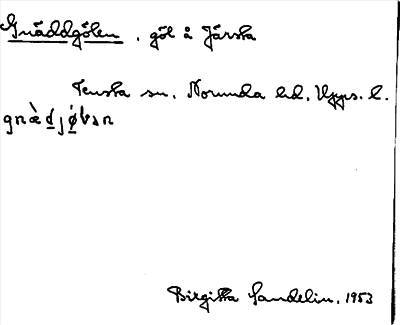 Gnäddgölen, göl å Järsta
Tensta sn. Norunda hd. Upps. l.
gnæ̀ḏjǿ̱lən
Birgitta Sandelin, 1953